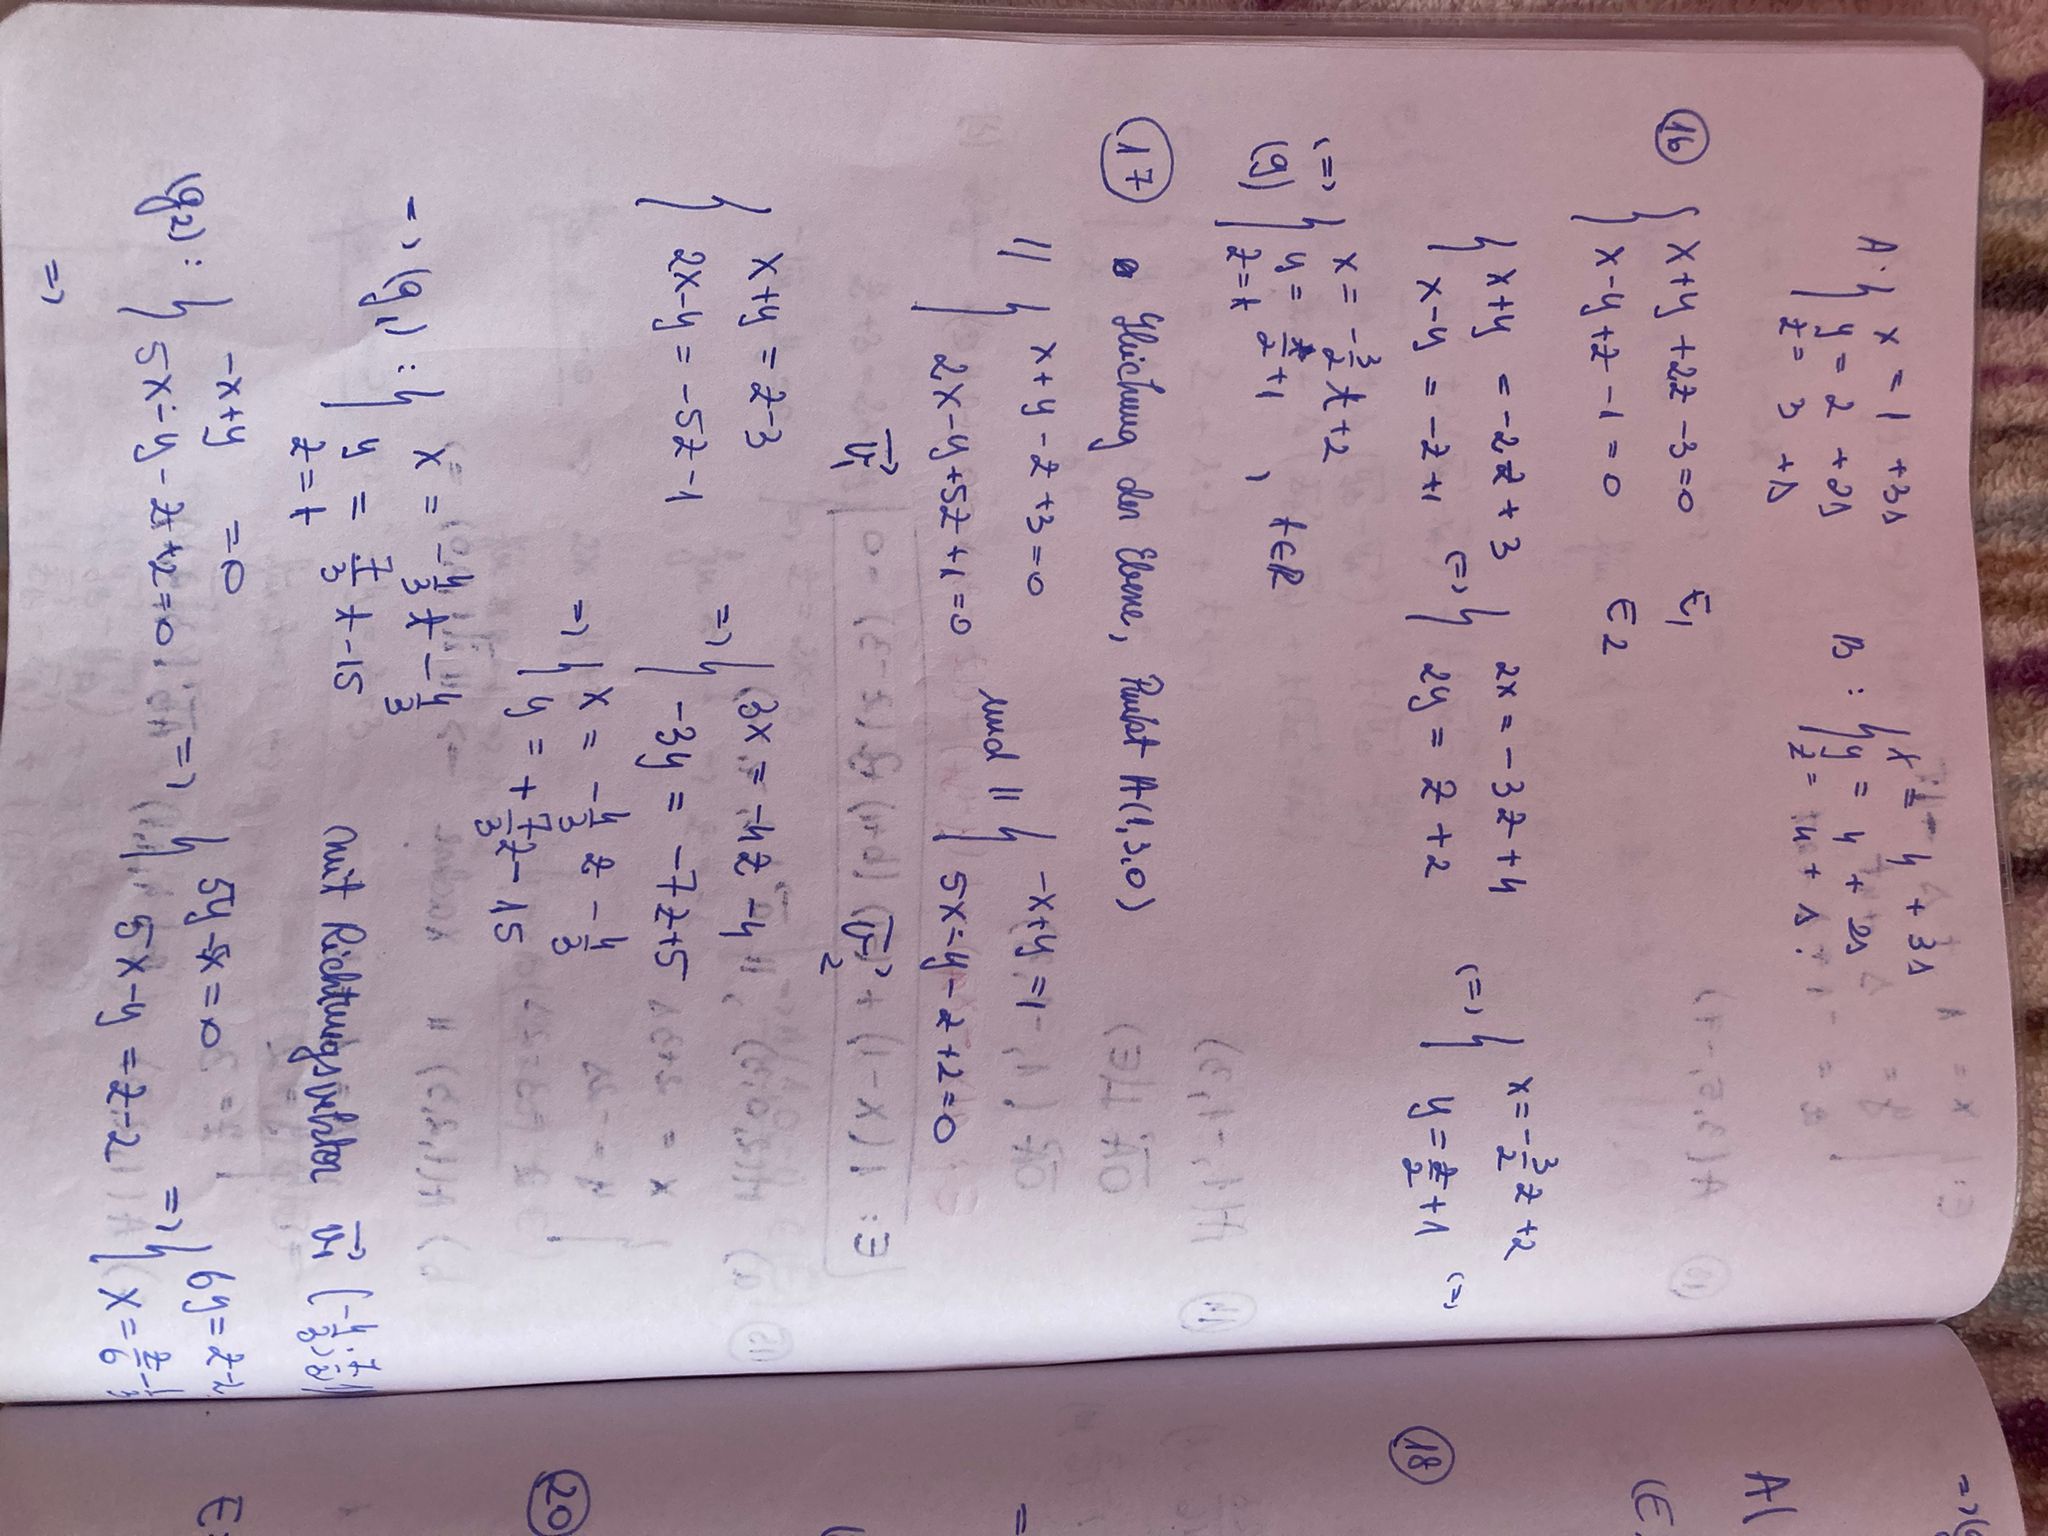 A: { x = 1 + 3s
y = 2 + 2s
z = 3 + s
B: { x = 4 + 3s
y = 4 + 2s
z = 4 + s.
16 { x+y+2z-3=0 E1
x-y+z-1=0 E2
{ x+y = -2z+3
x-y = -z+1
(=) { 2x = -3z+4
2y = z+2
(=) { x = -3/2 z + 2
y = z/2 + 1
(=)
(=) (g) { x = -3/2 t + 2
y = t/2 + 1, t∈R
z = t
17 Gleichung der Ebene, Punkt A(1,3,0)
|| { x+y-z+3=0
2x-y+5z+1=0
und || { -x+y=1
5x-y-z+2=0
v1 v2
{ x+y = z-3
2x-y = -5z-1
=) { 3x = -4z-4
-3y = -7z+5
=) { x = -4/3 z - 4/3
y = +7/3 z - 15
=) (g1): { x = -4/3 t - 4/3
y = 7/3 t - 15
z = t
mit Richtungsvektor v1 (-4/3, 7/3, 1)
(g2): { -x+y =0
5x-y-z+2=0
=) { 5y-5x=0
5x-y = z-2
=) { 6y = z-2
x = z/6 - 1/3
=)
18
A(
(E
20
E: